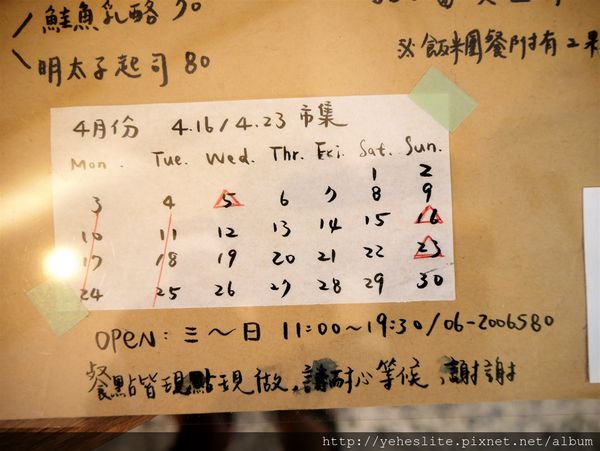 鮭魚乳酪 70
明太子起司 80
※飯糰餐附有2果
4月份 4.16/4.23 市集
Mon. Tue. Wed. Thr. Fri. Sat. Sun.
1 2
3 4 5 6 7 8 9
10 11 12 13 14 15 16
17 18 19 20 21 22 23
24 25 26 27 28 29 30
OPEN: 三～日 11:00～19:30/06-2006580
餐點皆現點現做,請耐心等候,謝謝
http://yeheslite.pixnet.net/album